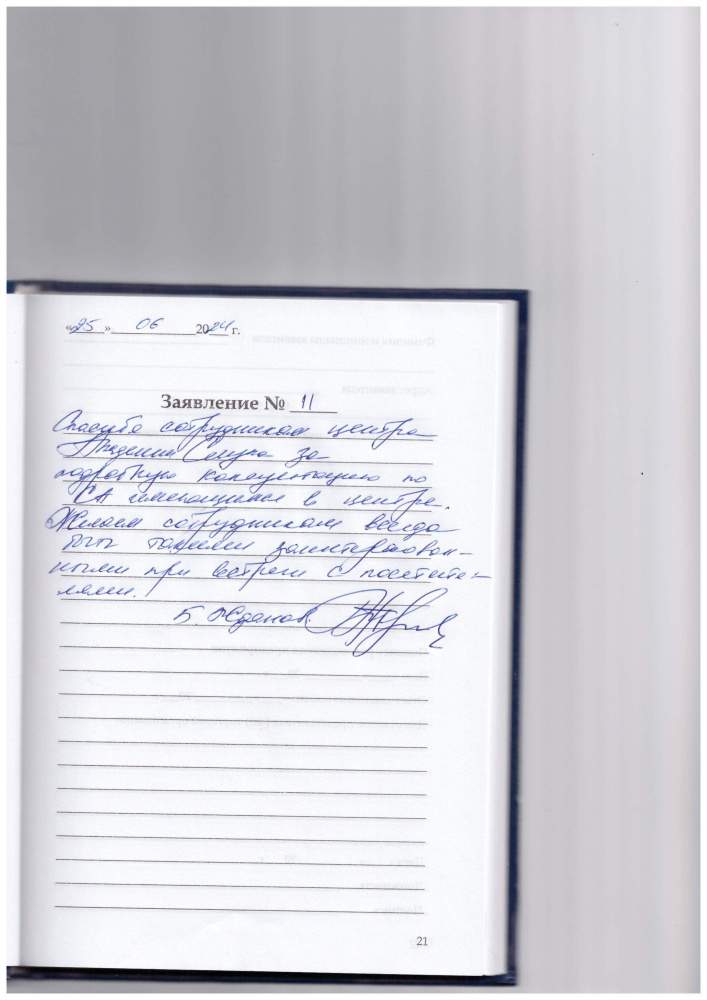 «25» 06 2024 г.
Заявление № 11
Спасибо сотрудникам центра
Академия Слуха за
подробную консультацию по
СА имеющимся в центре.
Желаем сотрудникам всегда
быть такими заинтересован-
ными при встрече с посетите-
лями.
Б Жданов
21